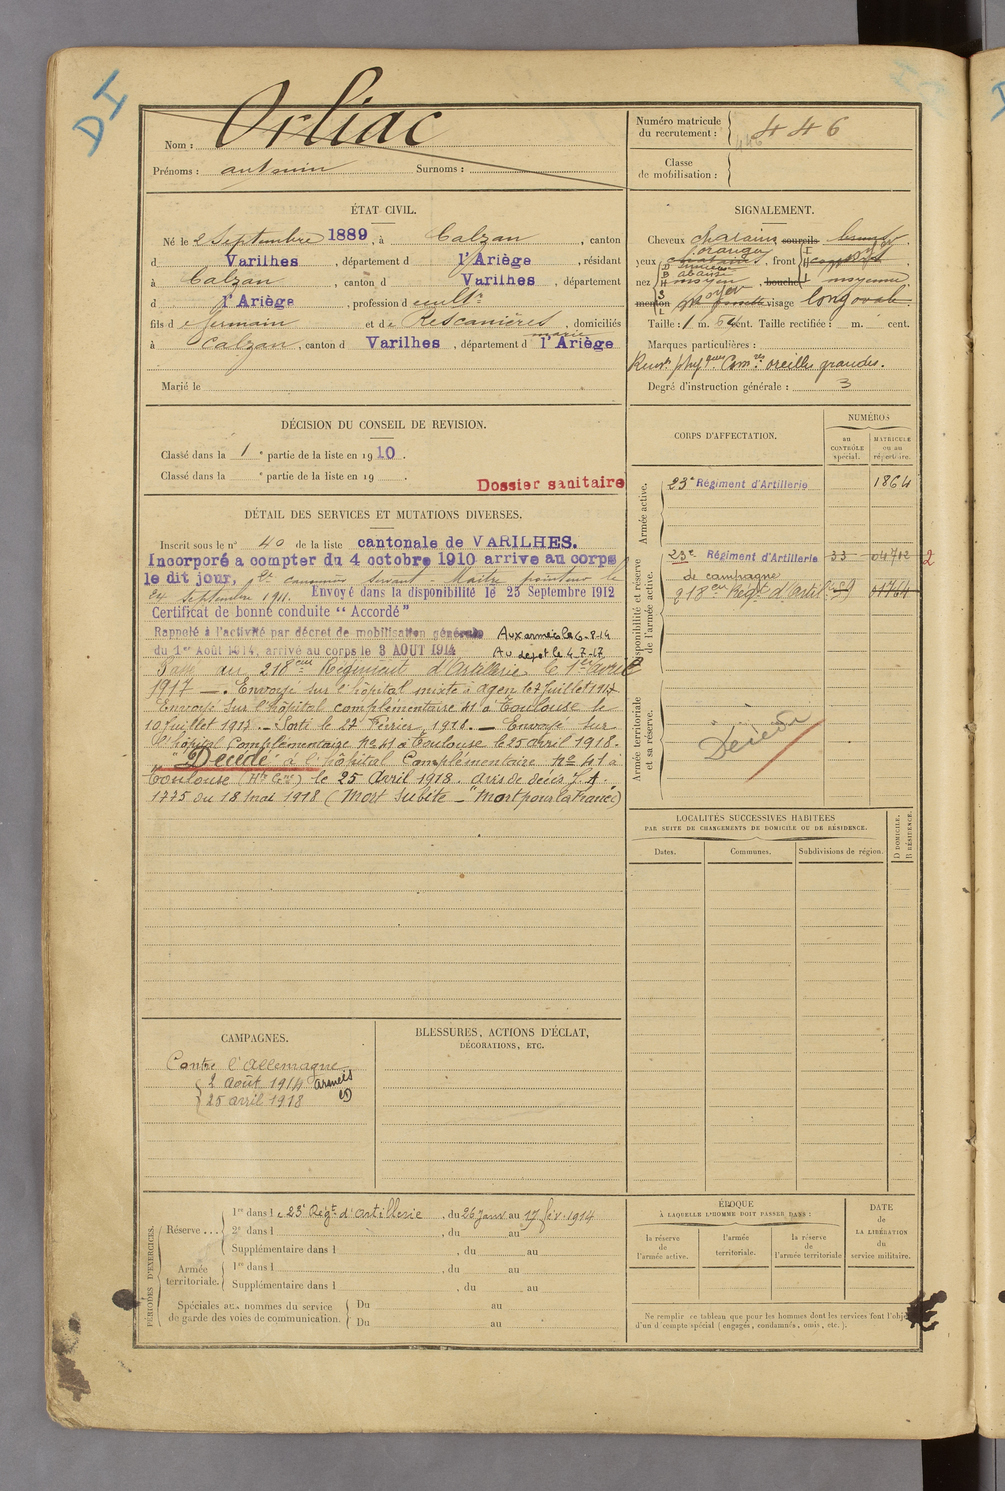 DI
Nom : Orliac
Prénoms : antonin Surnoms :
Numéro matricule du recrutement : 446
446
Classe de mobilisation :
ÉTAT CIVIL.
Né le 2 Septembre 1889, à Calzan, canton
d Varilhes, département d l'Ariège, résidant
à Calzan, canton d Varilhes, département
d l'Ariège, profession d cultr
fils d e Germain et de Rescanières, domiciliés
marie
à Calzan, canton d Varilhes, département d l'Ariège
Marié le
SIGNALEMENT.
Cheveux chatains sourcils bruns
yeux orangé, front
nez moyen, bouche moyenne
menton visage long ovale
Taille : 1 m. 64 cent. Taille rectifiée : m. cent.
Marques particulières :
Renst phyques Comres oreilles grandes.
Degré d'instruction générale : 3
DÉCISION DU CONSEIL DE REVISION.
Classé dans la 1 e partie de la liste en 1910.
Classé dans la e partie de la liste en 19 .
Dossier sanitaire
DÉTAIL DES SERVICES ET MUTATIONS DIVERSES.
Inscrit sous le n° 40 de la liste cantonale de VARILHES.
Incorporé a compter du 4 octobre 1910 arrive au corps
le dit jour, 2e canonnier servant - Maitre pointeur le
24 Septembre 1911. Envoyé dans la disponibilité le 25 Septembre 1912
Certificat de bonne conduite “ Accordé ”
Rappelé à l'activité par décret de mobilisation générale Aux armées le 6-8-14
du 1er Août 1914, arrivé au corps le 3 AOUT 1914 Au dépot le 4-7-17
Passé au 218eme Régiment d'Artillerie le 1er avril
1917 —. Envoyé sur l'hôpital mixte à agen le 7 Juillet 1917
Envoyé Sur l'hôpital complémentaire 41 à Toulouse le
10 Juillet 1917. - Sorti le 27 Février 1918. — Envoyé sur
l'hôpital Complémentaire no 41 à Toulouse le 25 avril 1918.
"Décédé à l'hôpital Complémentaire no 41 à
Toulouse (Hte Gne) le 25 Avril 1918. avis de décès J.A.
1775 du 18 mai 1918 (Mort Subite — "Mort pour la France)
CORPS D'AFFECTATION.
NUMÉROS
au CONTRÔLE spécial.
MATRICULE ou au répertoire.
Armée active.
23e Régiment d'Artillerie 1864
Disponibilité et réserve de l'armée active.
23e Régiment d'Artillerie 33 04712 2
de campagne
218eme Régt d'Artil 01764
Armée territoriale et sa réserve.
Décédé
LOCALITÉS SUCCESSIVES HABITÉES
PAR SUITE DE CHANGEMENTS DE DOMICILE OU DE RÉSIDENCE.
Dates.
Communes.
Subdivisions de région.
D DOMICILE. R RÉSIDENCE.
CAMPAGNES.
Contre l'Allemagne
2 août 1914 armées
25 avril 1918
BLESSURES, ACTIONS D'ÉCLAT,
DÉCORATIONS, ETC.
PÉRIODES D'EXERCICES.
Réserve...
1re dans l e 23e Régt d'artillerie, du 26 Janv au 17 fév. 1914
2e dans l , du au
Supplémentaire dans l , du au
Armée territoriale.
1re dans l , du au
Supplémentaire dans l , du au
Spéciales aux hommes du service de garde des voies de communication.
Du au
Du au
ÉPOQUE
À LAQUELLE L'HOMME DOIT PASSER DANS :
la réserve de l'armée active.
l'armée territoriale.
la réserve de l'armée territoriale
DATE de LA LIBÉRATION du service militaire.
Ne remplir ce tableau que pour les hommes dont les services font l'objet
d'un décompte spécial (engagés, condamnés, omis, etc.).